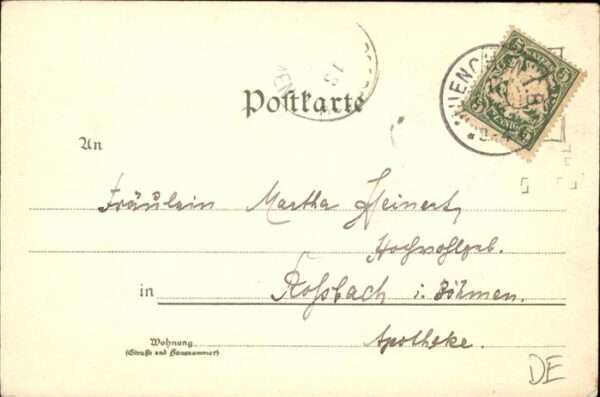 Postkarte
MUENCHEN
5
5
5
5
13
An
Fräulein Martha Heinert,
Hochwohlgeb.
in Roßbach i. Böhmen.
Wohnung
(Straße und Hausnummer)
Apotheke.
DE